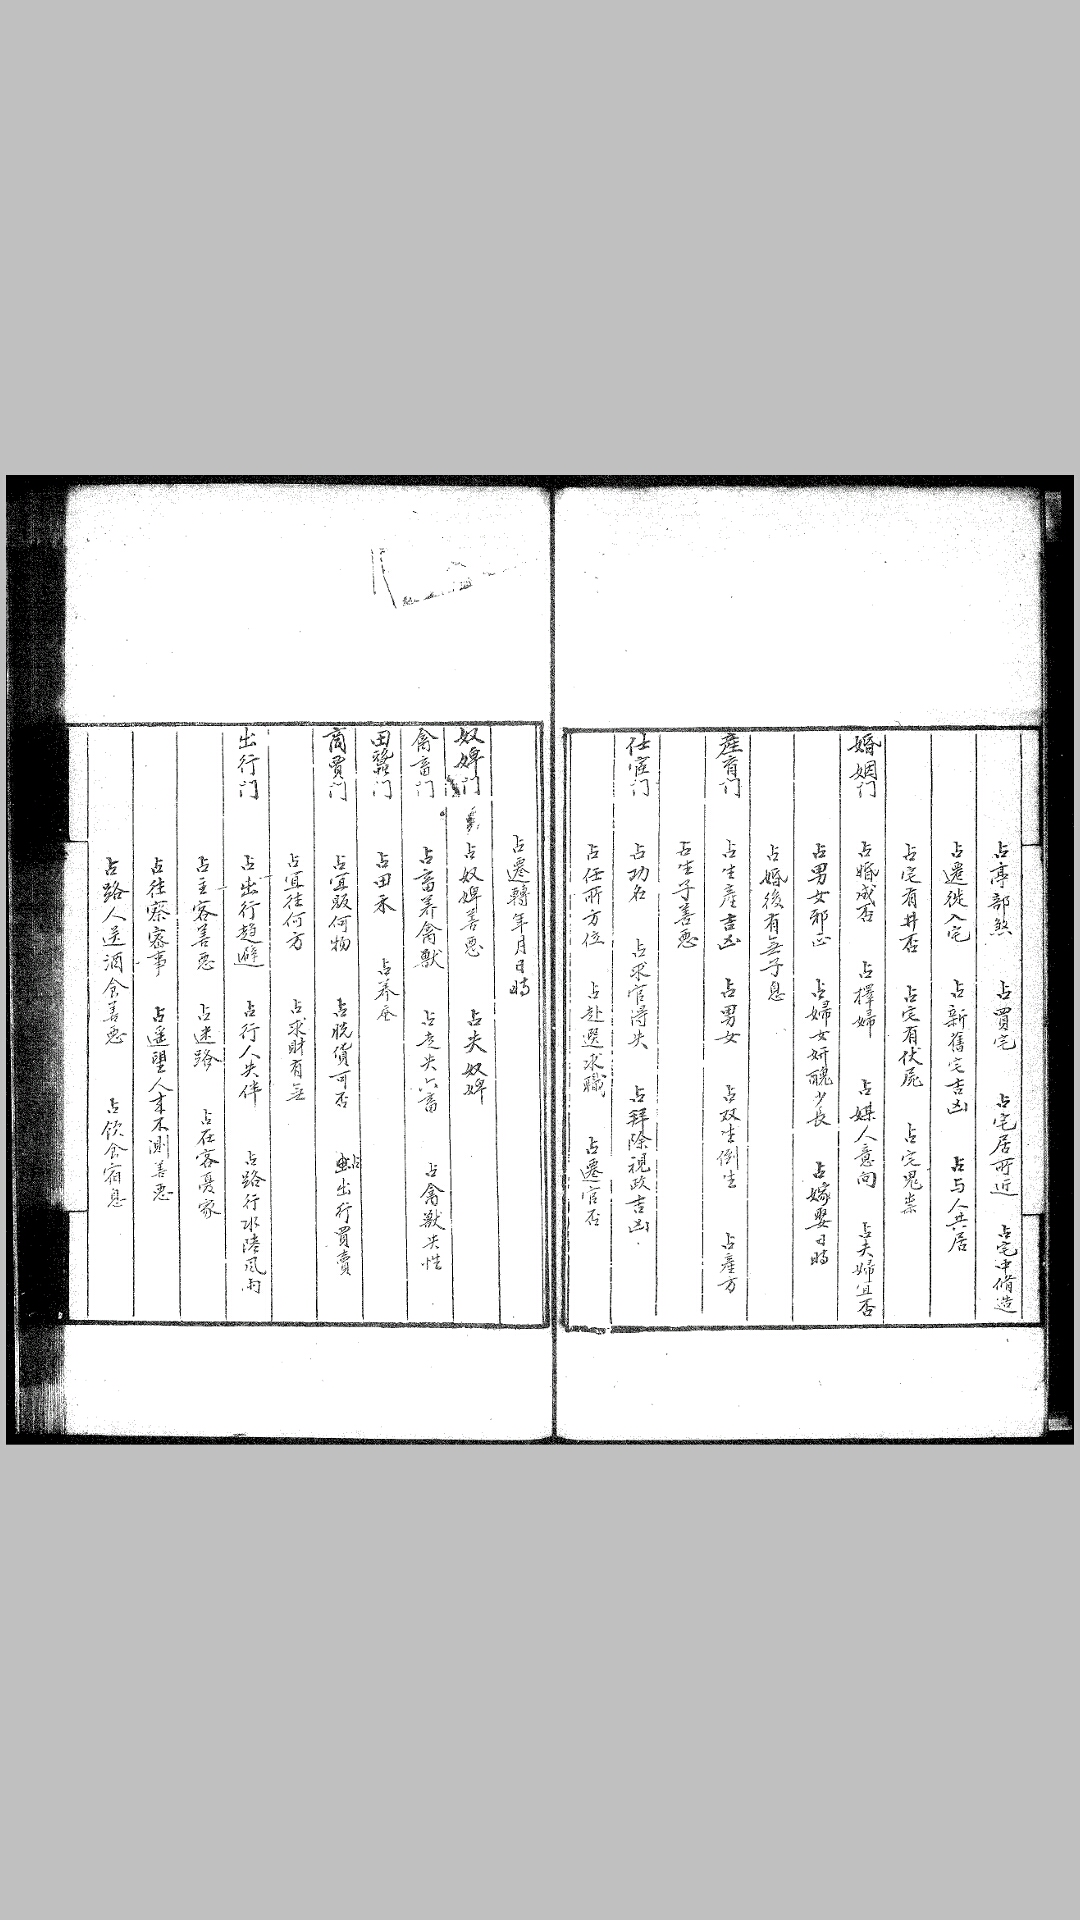 占亭部煞 占買宅 占宅居所近 占宅中脩造
占遷徙入宅 占新舊宅吉凶 占与人共居
占宅有井否 占宅有伏屍 占宅鬼祟
婚姻门 占婚成否 占擇婦 占媒人意向 占夫婦宜否
占男女邪正 占婦女妍醜少長 占嫁娶日時
占婚後有無子息
產育门 占生產吉凶 占男女 占双生倒生 占產方
占生子善惡
仕宦门 占功名 占求官得失 占拜除視政吉凶
占任所方位 占赴選求職 占遷官否
占遷轉年月日時
奴婢门 占奴婢善惡 占失奴婢
禽畜门 占畜养禽獸 占走失六畜 占禽獸失性
田蠶门 占田禾 占养蚕
商買门 占宜販何物 占脱貨可否 占出行買賣
占宜往何方 占求財有無
出行门 占出行趋避 占行人失伴 占路行水陸風雨
占主客善惡 占迷路 占在客憂家
占往察密事 占遥望人来不測善惡
占路人送酒食善惡 占飲食宿息